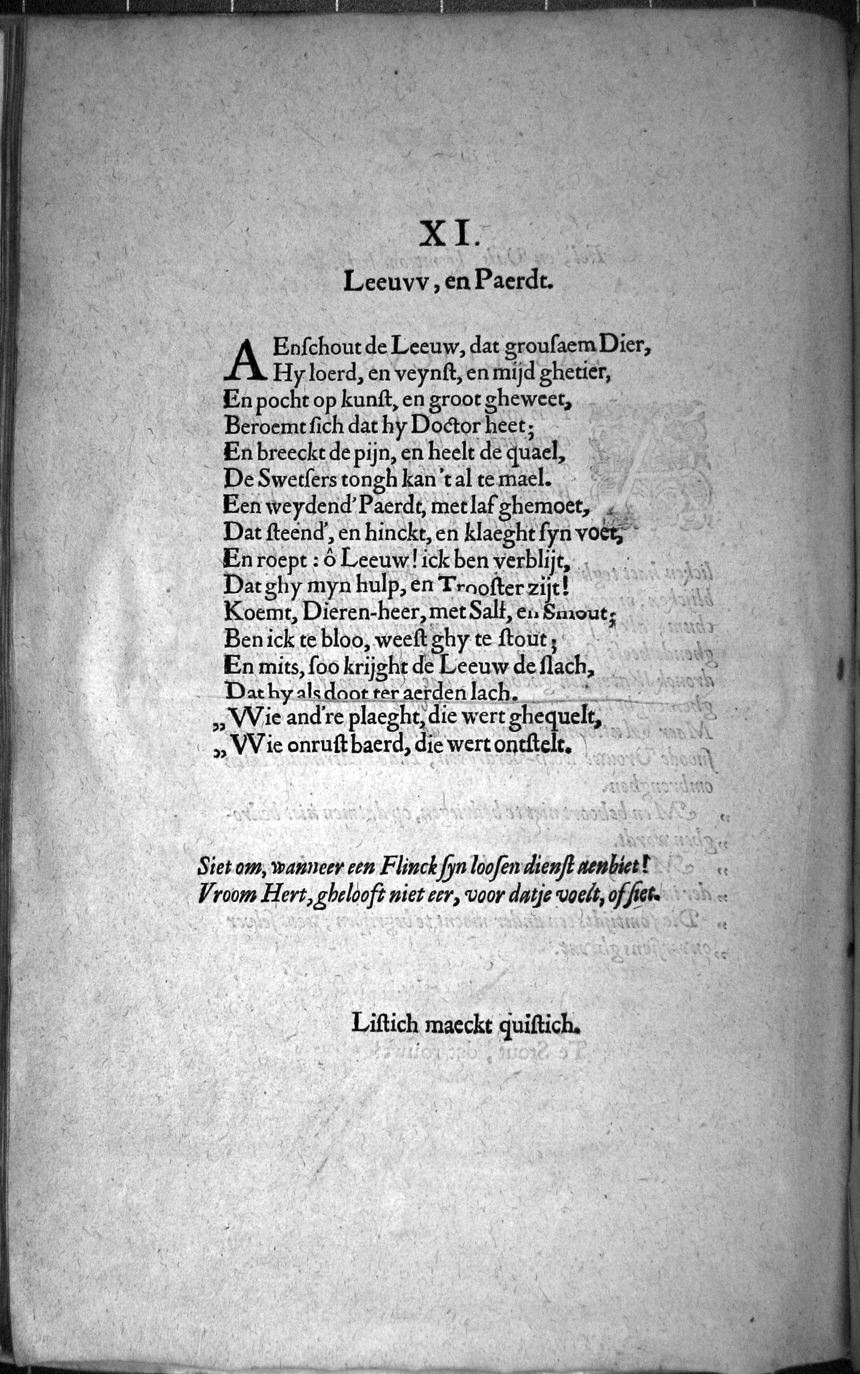 XI.
Leeuvv, en Paerdt.
AEnſchout de Leeuw, dat grouſaem Dier,
Hy loerd, en veynſt, en mijd ghetier,
En pocht op kunſt, en groot gheweet,
Beroemt ſich dat hy Doctor heet;
En breeckt de pijn, en heelt de quael,
De Swetſers tongh kan 't al te mael.
Een weydend' Paerdt, met laf ghemoet,
Dat ſteend', en hinckt, en klaeght ſyn voet,
En roept : ô Leeuw! ick ben verblijt,
Dat ghy myn hulp, en Trooſter zijt!
Koemt, Dieren-heer, met Salf, en Smout;
Ben ick te bloo, weeſt ghy te ſtout;
En mits, ſoo krijght de Leeuw de ſlach,
Dat hy als doot ter aerden lach.
„VVie and're plaeght, die wert ghequelt,
„VVie onruſt baerd, die wert ontſtelt.
Siet om, wanneer een Flinck ſyn looſen dienſt aenbiet!
Vroom Hert, ghelooft niet eer, voor datje voelt, of ſiet.
Liſtich maeckt quiſtich.